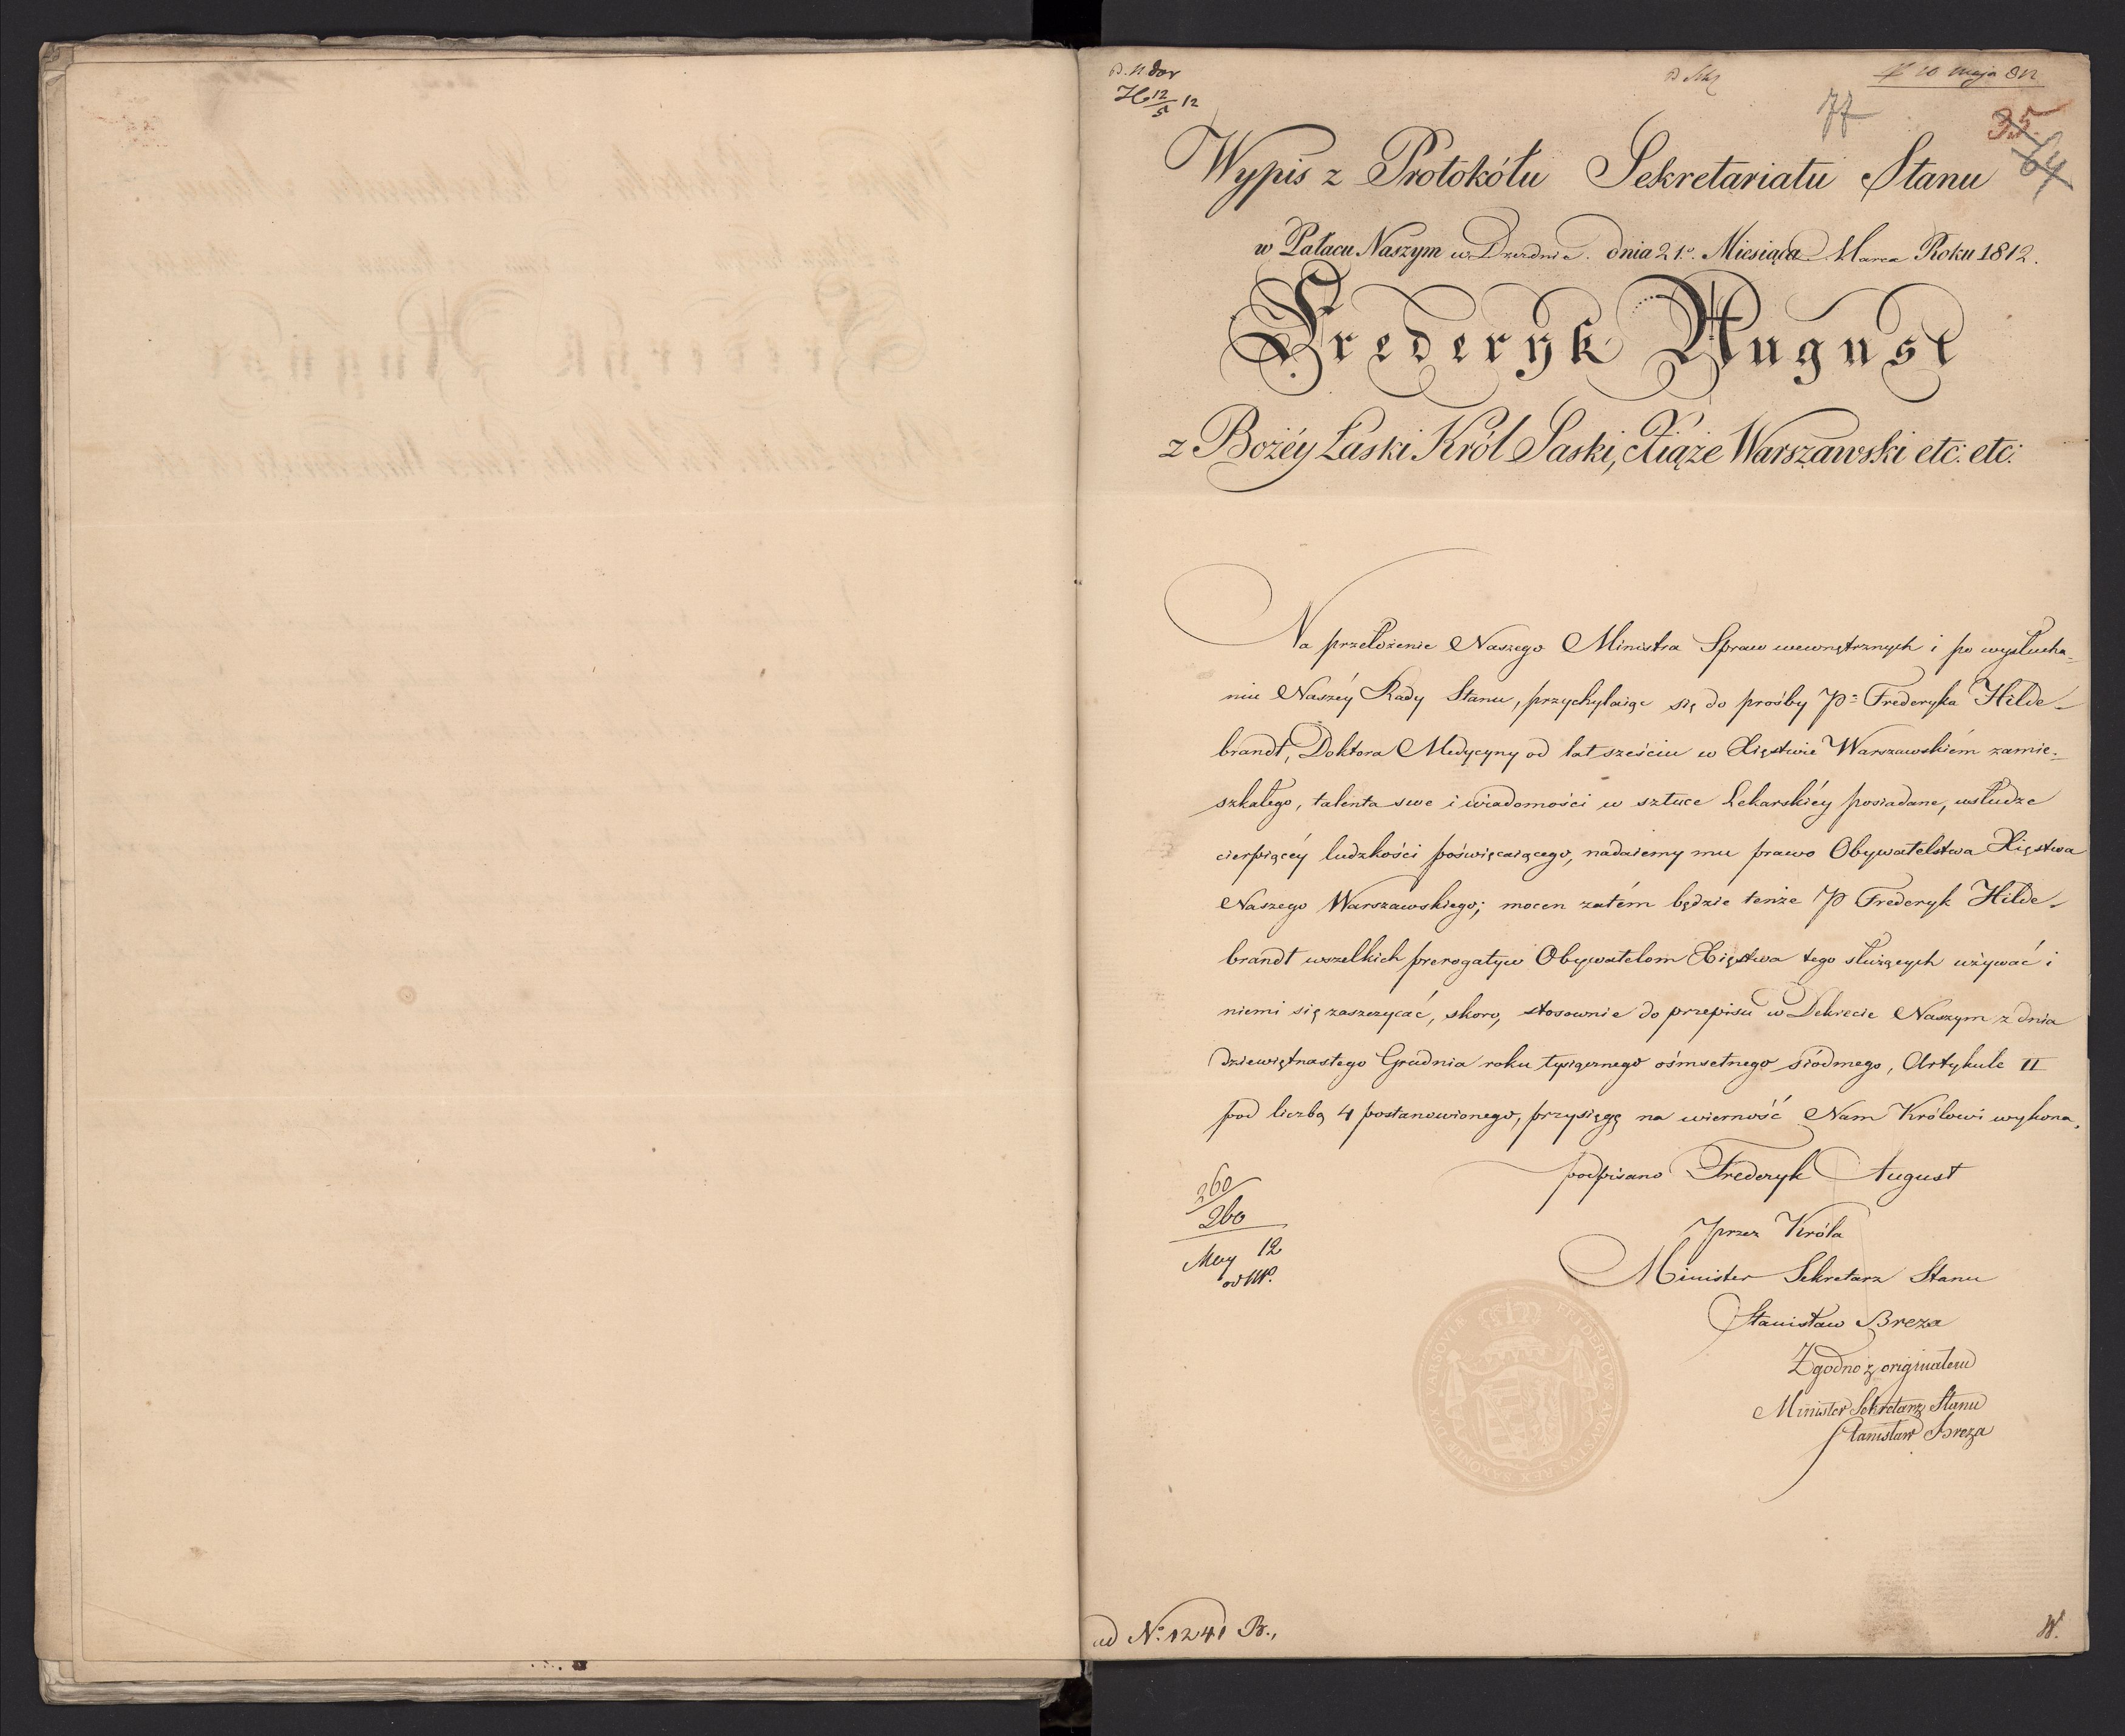 10 Maja 812
12/5 12
77
35.
64
Wypis z Protokółu Sekretariatu Stanu
w Pałacu Naszym w Dreźnie dnia 21.º Miesiąca Marca Roku 1812.
Frederyk August
z Bożéy Łaski Król Saski, Xiąże Warszawski etc: etc:
Na przełożenie Naszego Ministra Spraw wewnętrznych i po wysłucha=
niu Naszéy Rady Stanu, przychylaiąc się do prośby P= Frederyka Hilde=
brandt, Doktora Medycyny od lat sześciu w Xięstwie Warszawskiém zamie=
szkałego, talenta swe i wiadomości w sztuce Lekarskiéy posiadane, usłudze
cierpiącéy ludzkości poświęcaiącego, nadaiemy mu prawo Obywatelstwa Xięstwa
Naszego Warszawskiego; mocen zatém będzie tenże P Frederyk Hilde=
brandt wszelkich prerogatyw Obywatelom Xięstwa tego służących używać i
niemi się zaszczycać, skoro, stosownie do przepisu w Dekrecie Naszym z dnia
dziewiętnastego Grudnia roku tysiącznego ośmsetnego siódmego, Artykule II
pod liczbą 4 postanowionego, przysięgę na wierność Nam Królowi wykona.
podpisano Frederyk August
przez Króla
Minister Sekretarz Stanu
Stanisław Breza
Zgodno z originałem
Minister Sekretarz Stanu
Stanisław Breza
260
260
12
FRIDERICVS AVGVSTVS REX SAXONIE DVX VARSOVIÆ
ad Nº. 1241 B.,
W.